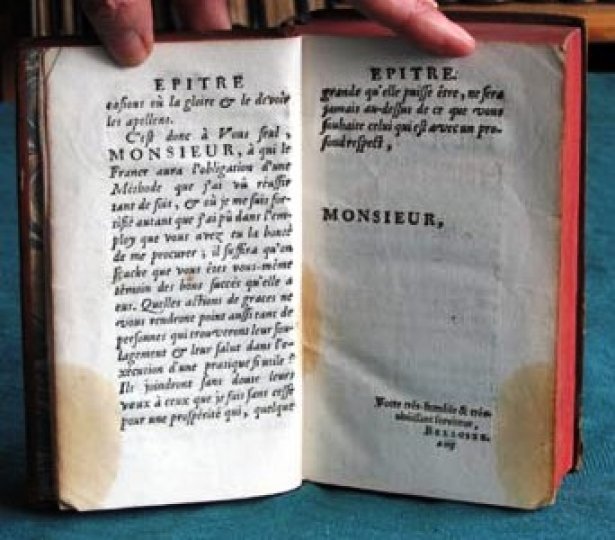 EPITRE
casions où la gloire & le devoir
les apellent.
C'est donc à Vous seul,
MONSIEUR, à qui le
France aura l'obligation d'une
Méthode que j'ai vû réussir
tant de fois, & où je me suis for-
tifié autant que j'ai pû dans l'em-
ploy que vous avez eu la bonté
de me procurer; il suffira qu'on
sçache que vous êtes vous-même
témoin des bons succés qu'elle a
eus. Quelles actions de graces ne
vous rendront point aussi tant de
personnes qui trouveront leur sou-
lagement & leur salut dans l'e-
xécution d'une pratique si utile?
Ils joindront sans doute leurs
vœux à ceux que je fais sans cesse
pour une prospérité qui, quelque
EPITRE.
grande qu'elle puisse être, ne sera
jamais au-dessus de ce que vous
souhaite celui qui est avec un pro-
fond respect,
MONSIEUR,
Votre trés-humble & trés-
obéissant serviteur,
BELLOSTE.